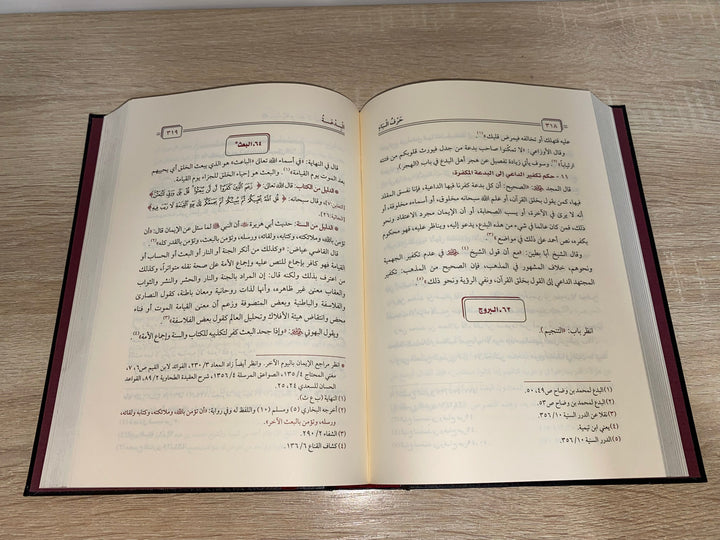 ٣١٨
حَرْفُ البَاءِ
عليه فتهلك أو تخالفه فيمرض قلبك»(١).
وقال الأوزاعي: «لا تمكنوا صاحب بدعة من جدل فيورث قلوبكم من فتنته
ارتياباً»(٢) وسوف يأتي زيادة تفصيل عن هجر أهل البدع في باب (الهجر).
١١ - حكم تكفير الداعي إلى البدعة المكفرة:
قال المجد: «الصحيح: أن كل بدعة كفرنا فيها الداعية، فإنا نفسق المقلد
فيها، كمن يقول بخلق القرآن، أو علم الله سبحانه مخلوق، أو أسماءه مخلوقة، أو
أنه لا يرى في الآخرة، أو يسب الصحابة، أو أن الإيمان مجرد الاعتقاد ونحو
ذلك، فمن كان عالما في شيء من هذه البدع، يدعو إليه، ويناظر عليه، فهو محكوم
بكفره، نص أحمد على ذلك في مواضع»(٣).
وقال الشيخ أبا بطين: «مع أن قول الشيخ(٤) في عدم تكفير الجهمية
ونحوهم، خلاف المشهور في المذهب، فإن الصحيح من المذهب: تكفير
المجتهد الداعي إلى القول بخلق القرآن، ونفي الرؤية ونحو ذلك»(٥).
٦٣. البروج
انظر باب: «التنجيم».
(١) البدع لمحمد بن وضاح ص٤٩، ٥٠.
(٢) البدع لمحمد بن وضاح ص٥٣.
(٣) نقلا عن الدرر السنية ١٠/ ٣٥٦.
(٤) يعني ابن تيمية.
(٥) الدرر السنية ١٠/ ٣٥٦.
٣١٩
٦٤. البعث*
قال في النهاية: «في أسماء الله تعالى «الباعث» هو الذي يبعث الخلق أي يحييهم
بعد الموت يوم القيامة»(١). والبعث هو إحياء الخلق للجزاء يوم القيامة.
* الدليل من الكتاب: قال الله تعالى: ﴿زَعَمَ الَّذِينَ كَفَرُوا أَن لَّن يُبْعَثُوا قُلْ بَلَى وَرَبِّي لَتُبْعَثُنَّ﴾
وقال سبحانه: ﴿قُلِ اللَّهُ يُحْيِيكُمْ ثُمَّ يُمِيتُكُمْ ثُمَّ يَجْمَعُكُمْ إِلَى يَوْمِ الْقِيَامَةِ لَا رَيْبَ فِيهِ﴾
[الجاثية: ٢٦].
* الدليل من السنة: حديث أبي هريرة أن النبي ﷺ لما سئل عن الإيمان قال: «أن
تؤمن بالله، وملائكته، وكتابه، ولقائه، ورسله، وتؤمن بالبعث، وتؤمن بالقدر كله»(٢).
قال القاضي عياض: «وكذلك من أنكر الجنة أو النار أو البعث أو الحساب أو
القيامة فهو كافر بإجماع للنص عليه وإجماع الأمة على صحة نقله متواتراً، وكذلك
من اعترف بذلك ولكنه قال: إن المراد بالجنة والنار والحشر والنشر والثواب
والعقاب معنى غير ظاهره، وأنها لذات روحانية ومعان باطنة، كقول النصارى
والفلاسفة والباطنية وبعض المتصوفة وزعم أن معنى القيامة الموت أو فناء
محض وانتقاض هيئة الأفلاك وتحليل العالم كقول بعض الفلاسفة»(٣).
ويقول البهوتي: «وإذا جحد البعث كفر لتكذيبه للكتاب والسنة وإجماع الأمة»(٤).
* انظر مراجع الإيمان باليوم الآخر. وانظر أيضاً زاد المعاد ٣/ ٢٣٠، الفوائد لابن القيم ص٦، ٧،
مغني المحتاج ٤/ ١٣٥، الصواعق المرسلة ٤/ ١٣٥٦، شرح العقيدة الطحاوية ٢/ ٨٩، القواعد
الحسان للسعدي ٢٤، ٢٥.
(١) النهاية (ب ع ث).
(٢) أخرجه البخاري (٥٠) ومسلم (١٠) واللفظ له وفي رواية: «أن تؤمن بالله، وملائكته، وكتابه ولقائه،
ورسله، وتؤمن بالبعث الآخر».
(٣) الشفاء ٢/ ٢٩٠.
(٤) كشاف القناع ٦/ ١٣٦.